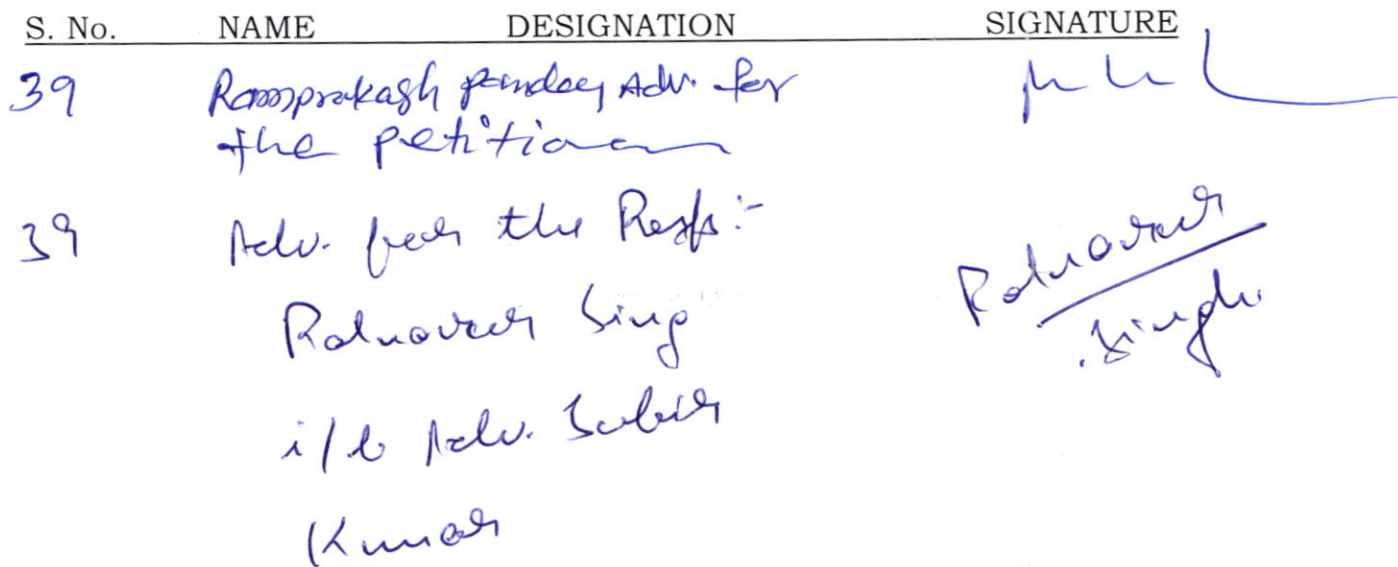 S. No. NAME DESIGNATION SIGNATURE
39 Ramprakash pandey Adv. for
the petitioner
39 Adv. for the Resp:-
Ratnaveer Sing
i/b Adv. Subir
Kumar
Ratnaveer
Singh